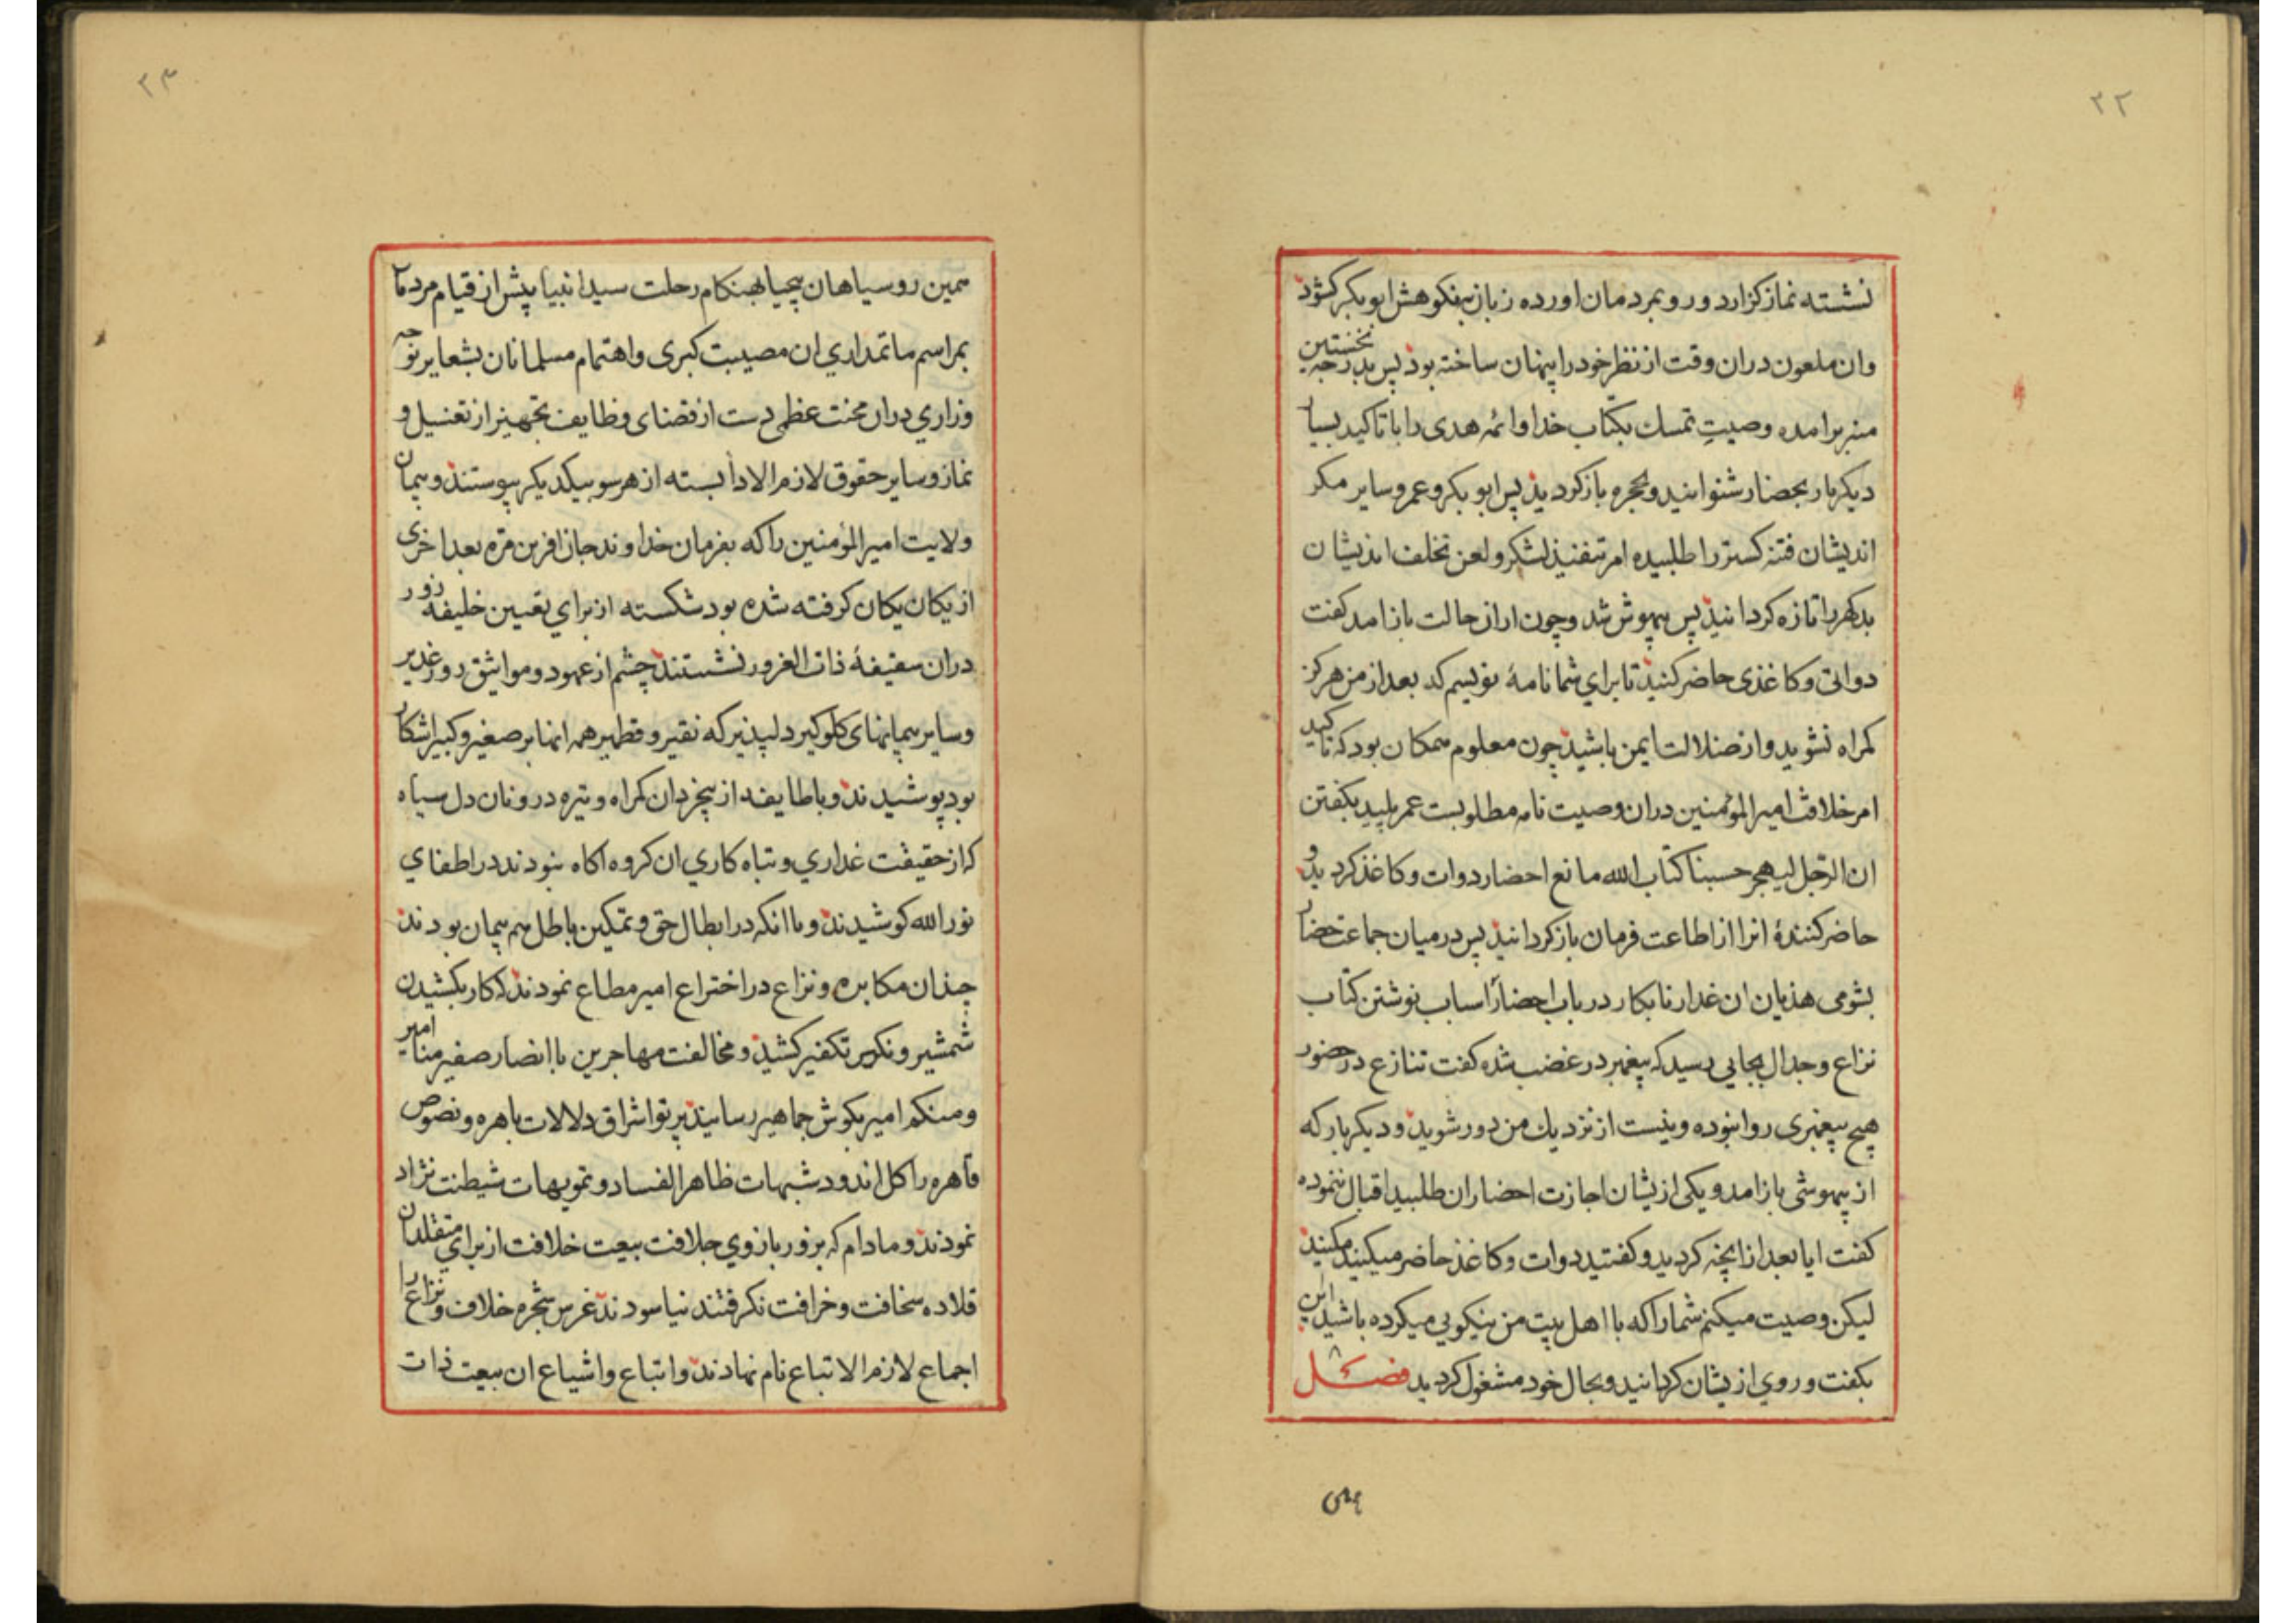 ۲۲
نشسته نماز كزارد و رو بمردمان اورده زبان بنكوهش ابو بكر كشود
وان ملعون دران وقت از نظر خود را پنهان ساخته بود پس بدرجه نخستين
منبر برامده وصيتِ تمسك بكتاب خدا و ائمه هدى را با تاكيد بسيار
ديكر بار بحضار شنوانيد و بحجره باز كرديد پس ابو بكر و عمر و ساير مكر
انديشان فتنه كستر را طلبيده امر تنفيذ لشكر و لعن تخلف انديشان
بدكهر را تازه كردانيد پس بيهوش شد و چون ازان حالت باز امد كفت
دواتى و كاغذى حاضر كنيد تا براي شما نامهٔ نويسم كه بعد از من هركز
كمراه نشويد و از ضلالت ايمن باشيد چون معلوم همكان بود كه تاكيد
امر خلافت امير المؤمنين دران وصيت نامه مطلوبست عمر پليد بكفتن
ان الرّجل ليهجر حسبنا كتاب الله مانع احضار دوات و كاغذ كرديد و
حاضر كنندهٔ انرا از اطاعت فرمان باز كردانيد پس در ميان جماعت حضار
بشومى هذيان ان غدار نابكار در باب احضار اسباب نوشتن كتاب
نزاع و جدال بجايى رسيد كه پيغمبر در غضب شده كفت تنازع در حضور
هيچ پيغمبرى روا نبوده و نيست از نزديك من دور شويد و ديكر بار كه
از بيهوشى باز امد و يكى ازيشان اجازت احضار ان طلبيد اقبال ننموده
كفت ايا بعد از انچه كرديد و كفتيد دوات و كاغذ حاضر ميكنيد مكنيد
ليكن وصيت ميكنم شما را كه با اهل بيت من نيكويى ميكرده باشيد اين
بكفت و روي ازيشان كردانيد و بحال خود مشغول كرديد فصل ۸
همين
۲۳
همين روسياهان بيحيا بهنكام رحلت سيد انبيا پيش از قيام مردمان
بمراسم ماتمداري ان مصيبت كبرى و اهتمام مسلمانان بشعاير نوحه
و زاري دران محنت عظمى دست از قضاى وظايف تجهيز از تغسيل و
نماز و ساير حقوق لازم الادا بسته از هر سو بيكديكر پيوستند و پيمان
ولايت امير المؤمنين را كه بفرمان خداوند جان افرين مرة بعد اخرى
از يكان يكان كرفته شده بود شكسته از براي تعيين خليفه زور
دران سقيفهٔ ذات الغرور نشستند چشم از عهود و مواثيق روز غدير
و ساير پيمانهاى كلوكير دلپذير كه نقير و قطمير همه انها بر صغير و كبير اشكار
بود پوشيدند و با طايفه از بيخردان كمراه و تيره درونان دل سياه
كه از حقيقت غداري و تباه كاري ان كروه اكاه نبودند در اطفاي
نور الله كوشيدند و با انكه در ابطال حق و تمكين باطل هم پيمان بودند
چندان مكابره و نزاع در اختراع امير مطاع نمودند كه كار بكشيدن
شمشير و تكفير كشيد و مخالفت مهاجرين با انصار صفير منا امير
و منكم امير بكوش جماهير رسانيد پرتو اشراق دلالات باهره و نصوص
قاهره را كل اندود شبهات ظاهر الفساد و تمويهات شيطنت نژاد
نمودند و مادام كه بزور بازوي جلافت بيعت خلافت از براي متقلدان
قلاده سخافت و خرافت نكرفتند نياسودند غرس شجره خلاف و نزاع را
اجماع لازم الاتباع نام نهادند و اتباع و اشياع ان بيعت ذات